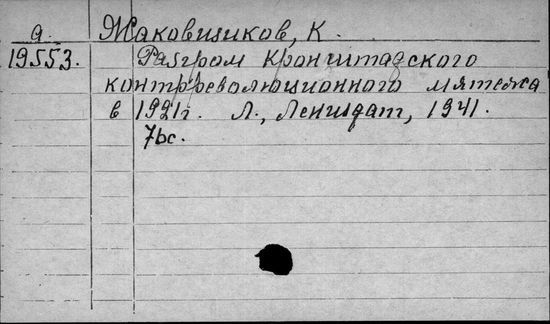 а
19553.
Жаковщиков, К.
Разгром Кронштадского
контрреволюционного мятежа
в 1921г. Л., Лениздат, 1941.
76с.